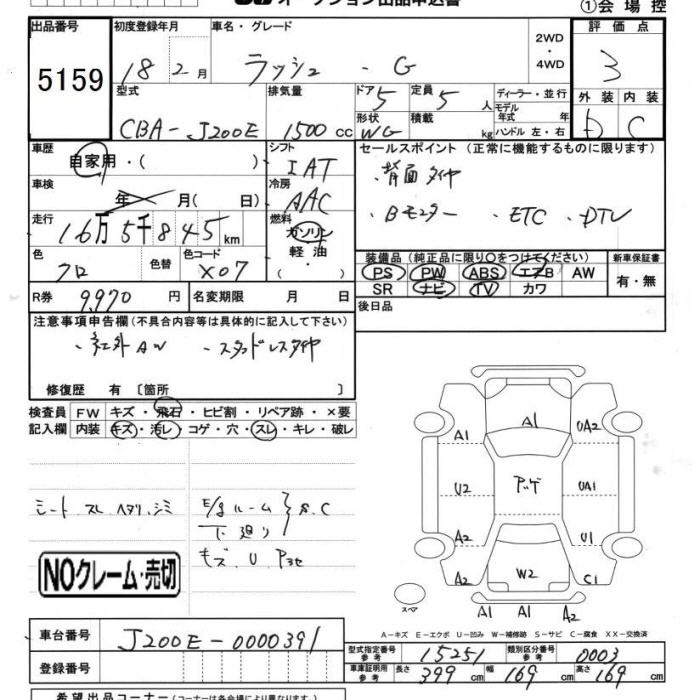 オークション出品申込書
①会場控
出品番号 初度登録年月 車名・グレード 2WD・4WD 評価点
5159 18 2月 ラッシュ - G 3
型式 排気量 ドア 5 定員 5人 ディーラー・並行 外装 内装
CBA-J200E 1500cc 形状 WG 積載 kg モデル年式 年 ハンドル 左・右 D C
車歴 自家用・( ) シフト IAT セールスポイント (正常に機能するものに限ります)
車検 年 月(日) 冷房 AAC ・背面タイヤ
走行 16万5千845km 燃料 ガソリン 軽油 ・( ) ・Bモニター ・ETC ・DTV
色 クロ 色替 色コード X07 装備品(純正品に限り○をつけてください) 新車保証書
PS PW ABS エアB AW 有・無
SR ナビ TV カワ
R券 9970円 名変期限 月 日 後日品
注意事項申告欄(不具合内容等は具体的に記入して下さい)
・社外AW ・スタッドレスタイヤ
修復歴 有〔箇所 〕
検査員 FW キズ・飛石・ヒビ割・リペア跡・×要
記入欄 内装 キズ・汚レ・コゲ・穴・スレ・キレ・破レ
シート スレ ヘタリ・シミ E/gルーム
下廻り S.C
キズ.U.P3セ
NOクレーム・売切
A1 A1 UA2
U2 アンダ UA1
A2 U1
A2 W2 C1
スペア A1 A1 A2
A-キズ E-エクボ U-凹み W-補修跡 S-サビ C-腐食 XX-交換済
車台番号 J200E-0000391 型式指定番号 参考 15251 類別区分番号 参考 0003
登録番号 車庫証明用 参考 長さ 399cm 幅 169cm 高さ 169cm
希望出品コーナー(コーナーは各会場により異なります)